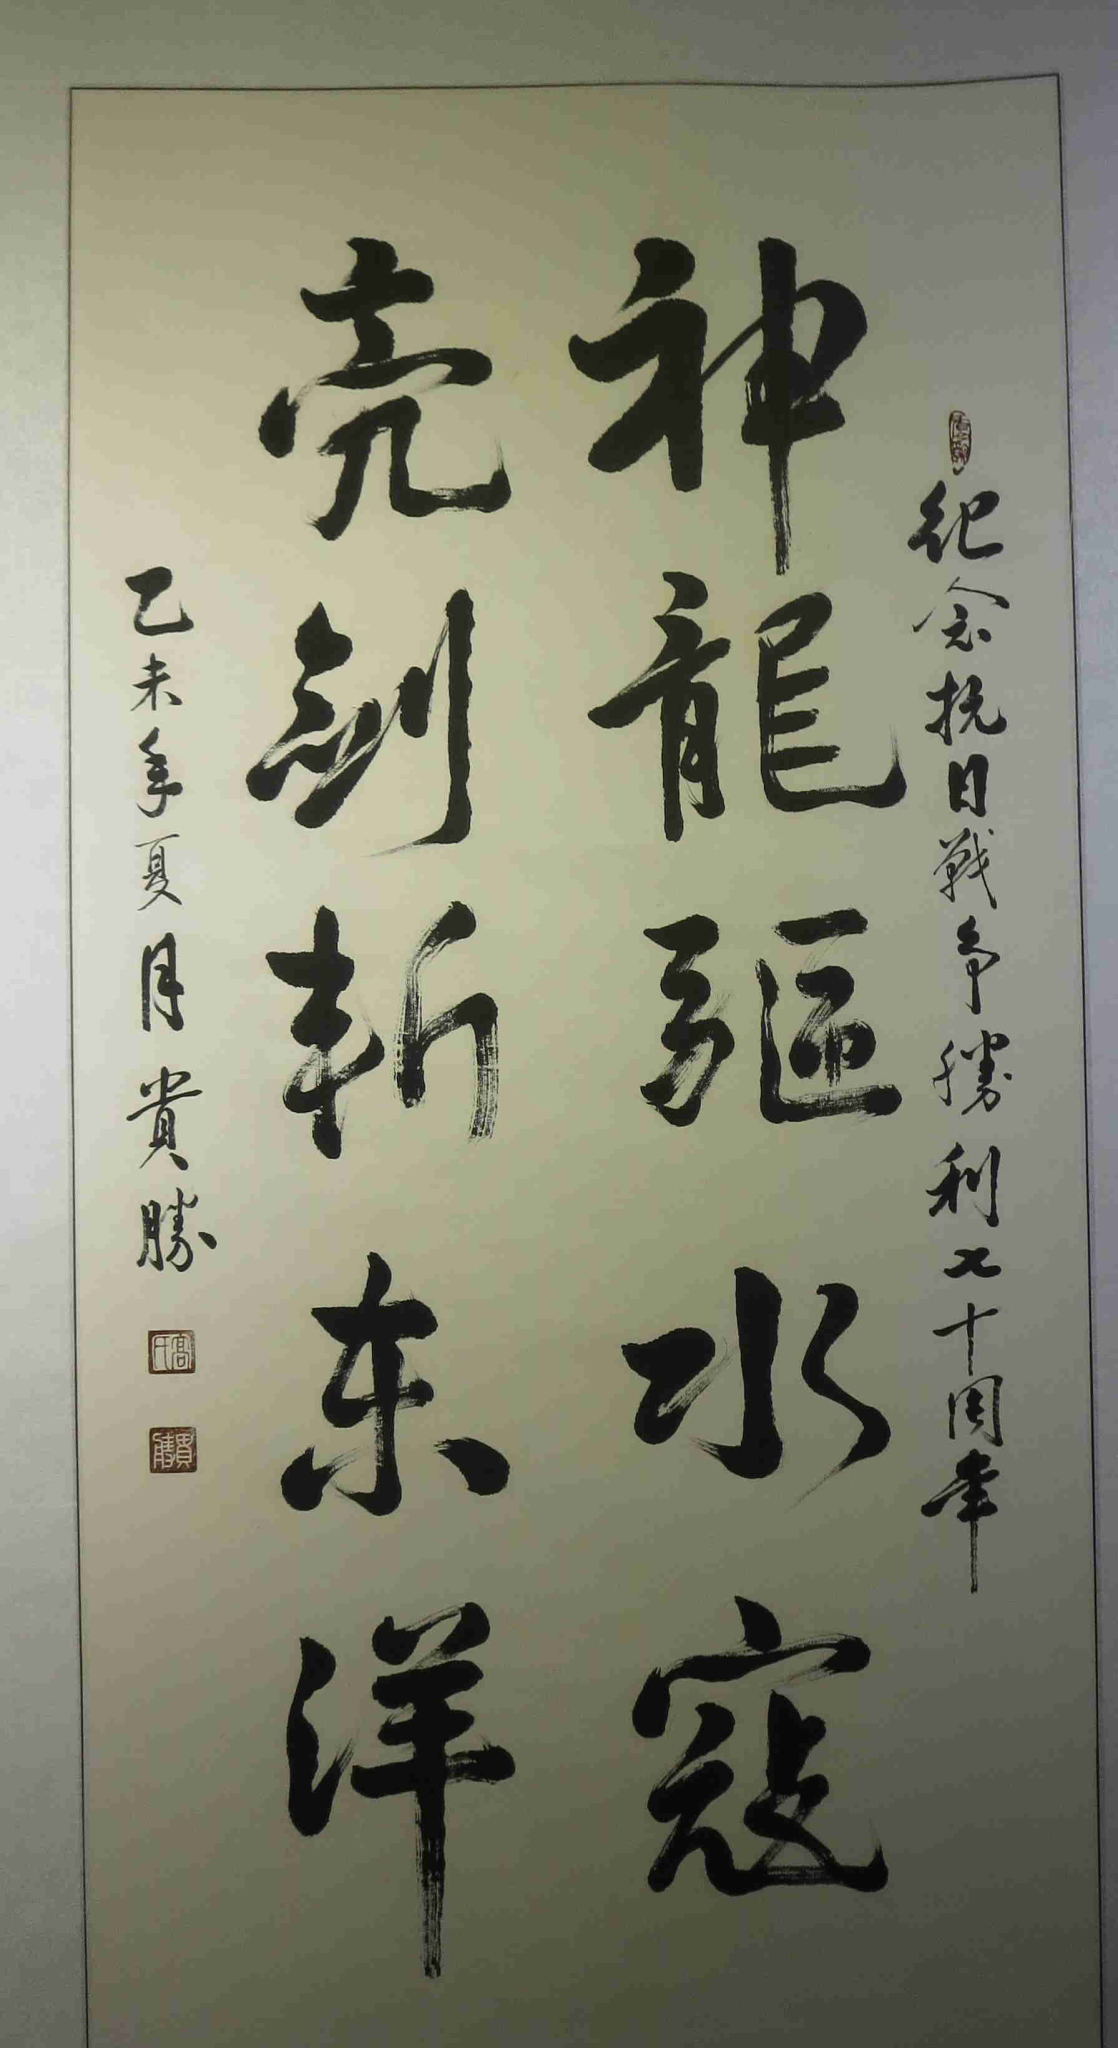 纪念抗日戰争勝利七十周年
神龍驅水寇
亮劍斬东洋
乙未年夏月貴勝
高氏
貴勝